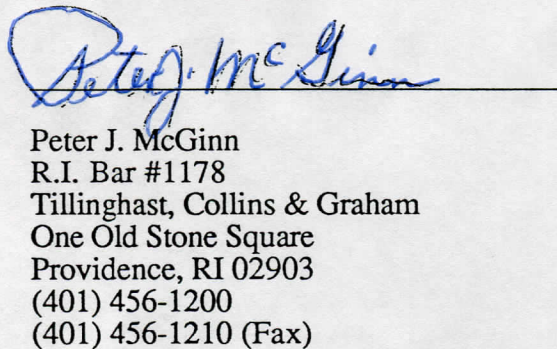 Peter J. McGinn
Peter J. McGinn
R.I. Bar #1178
Tillinghast, Collins & Graham
One Old Stone Square
Providence, RI 02903
(401) 456-1200
(401) 456-1210 (Fax)